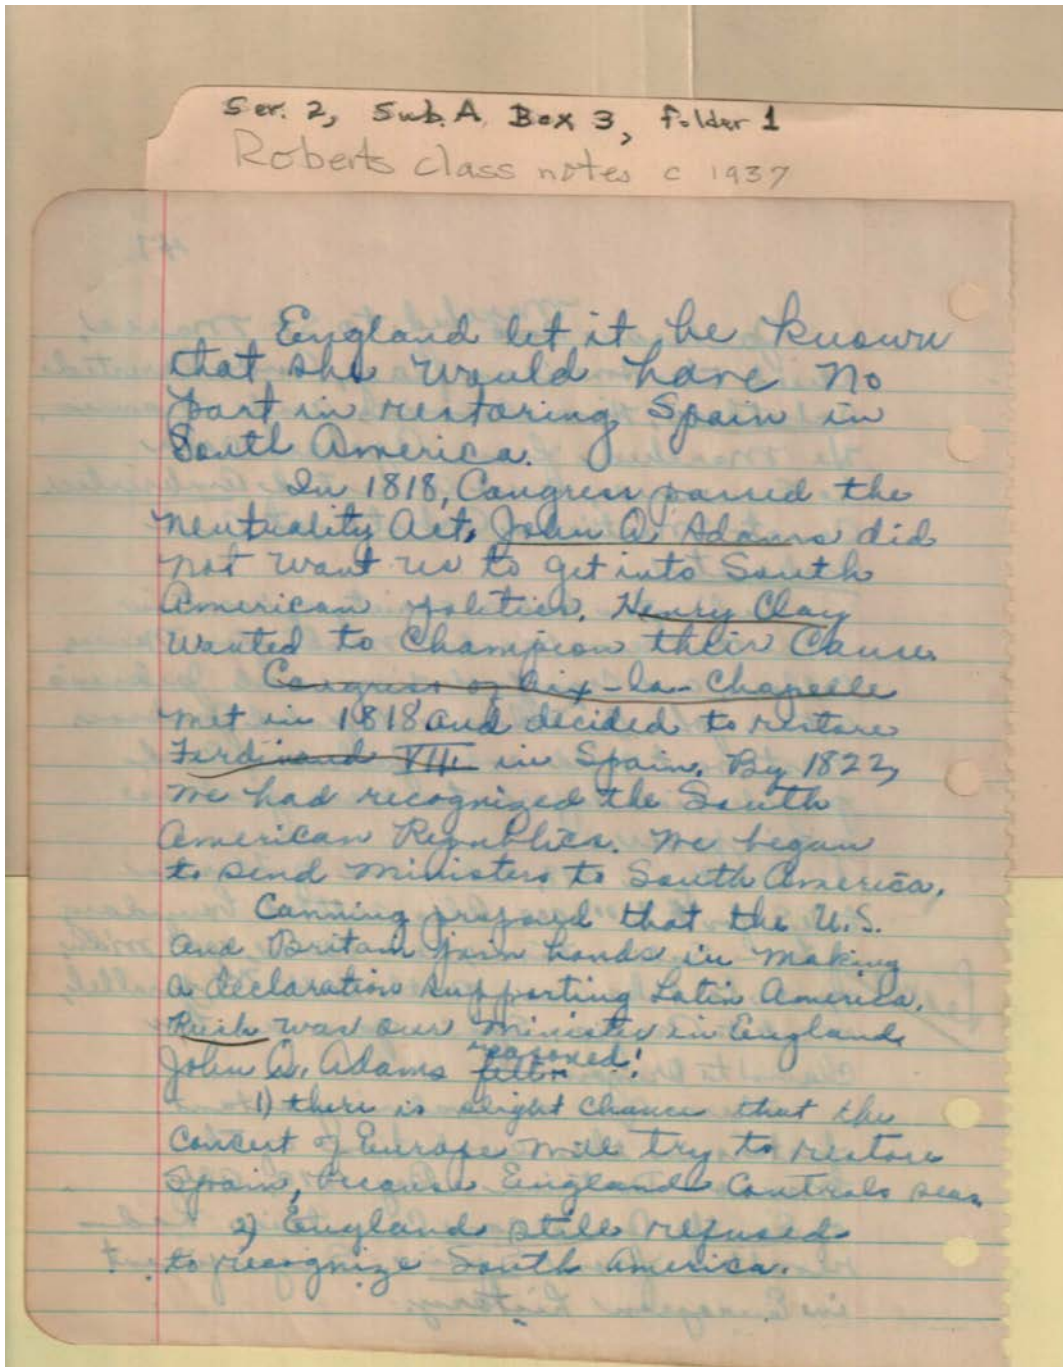 Ser. 2, Sub. A, Box 3, folder 1
Roberts class notes c 1937
England let it be known
that she would have no
part in restoring Spain in
South America.
In 1818, Congress passed the
Neutrality Act. John Q. Adams did
not want us to get into South
American politics. Henry Clay
wanted to champion their cause.
Congress of Aix-la-Chapelle
met in 1818 and decided to restore
Ferdinand VII in Spain. By 1822,
we had recognized the South
American Republics. We began
to send ministers to South America.
Canning proposed that the U.S.
and Britain join hands in making
a declaration supporting Latin America.
Rush was our minister in England.
John Q. Adams reasoned:
1) there is slight chance that the
Concert of Europe will try to restore
Spain, because England controls seas.
2) England still refused
to recognize South America.